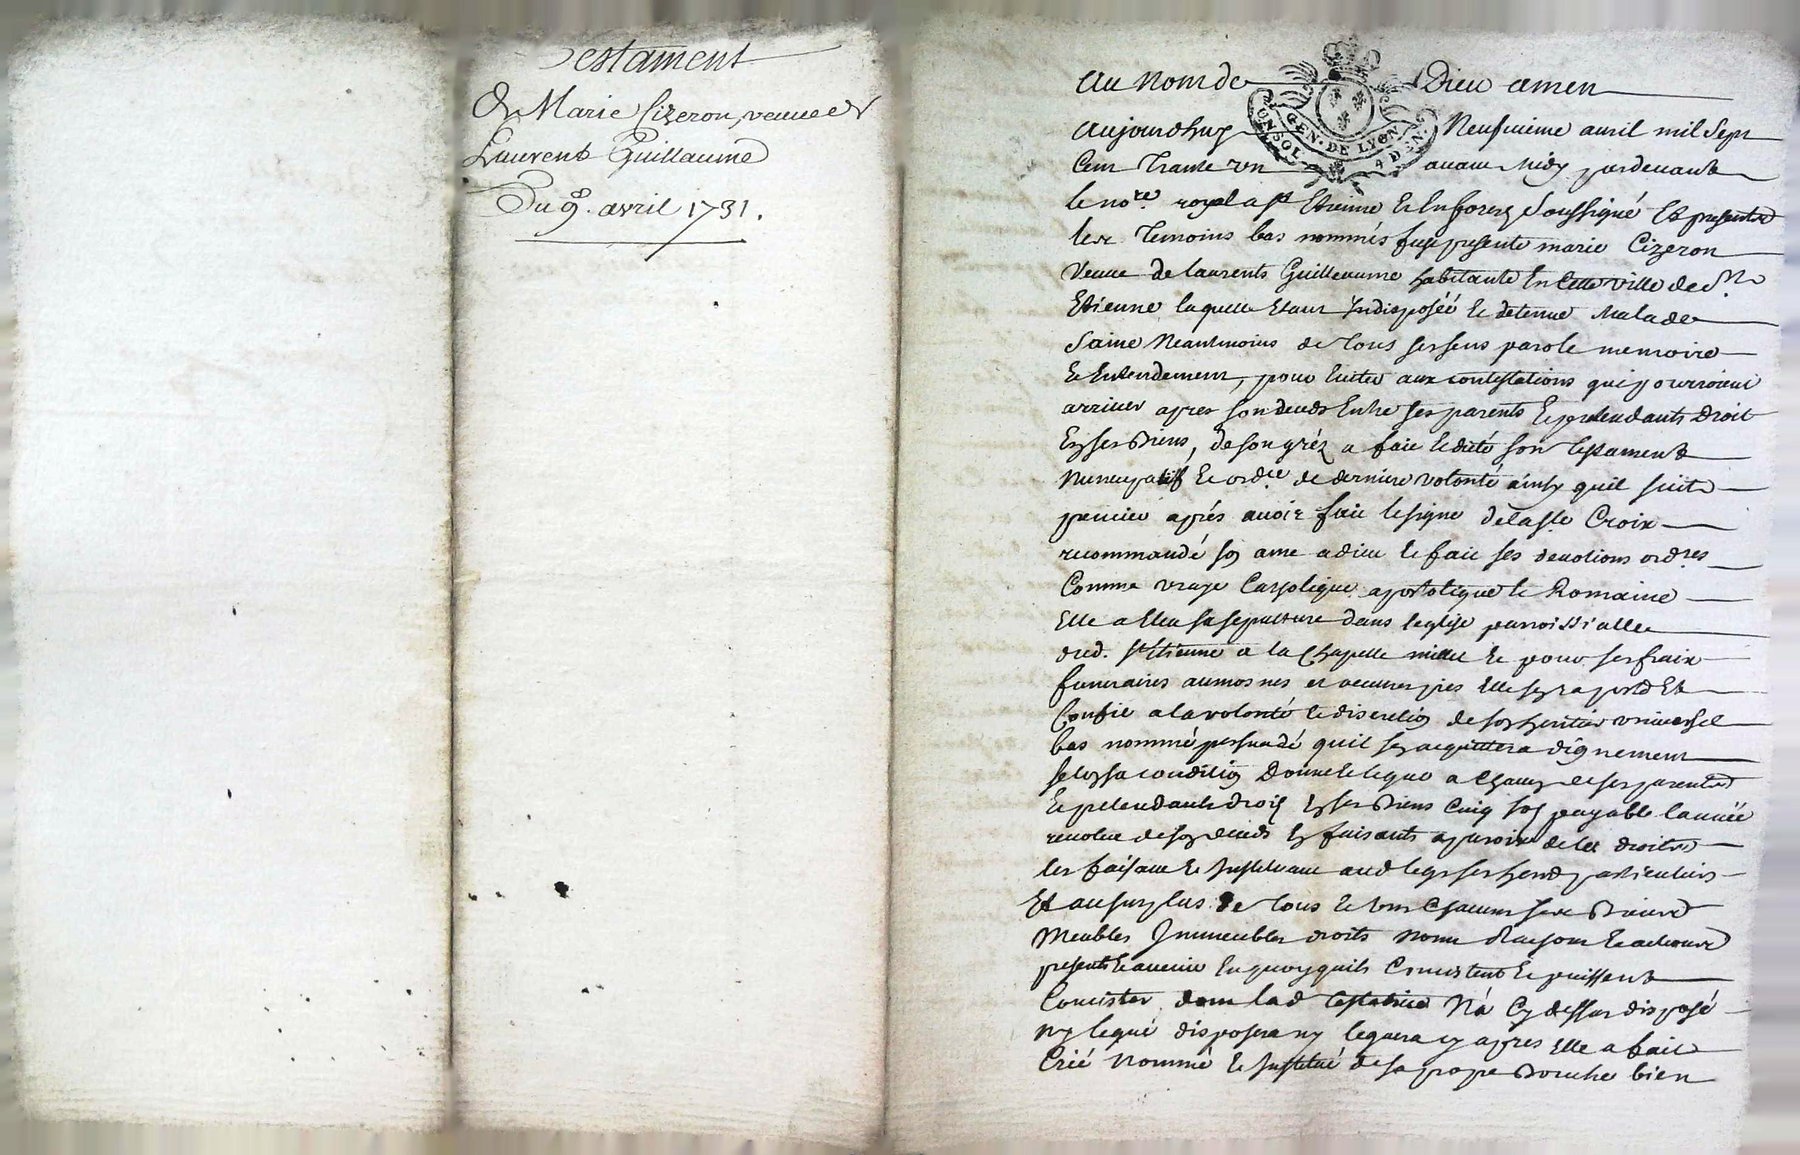 Testament
De Marie Cizeron, veuve de
Laurent Guillaume
Du 9. avril 1731.
Au nom de Dieu amen
GEN. DE LYON
4 DEN.
Aujourdhuy Neufvieme avril mil Sept
Cent Trante un avant Midy pardevant
le nore. royal a st Etienne En forez Soussigné Et presents
les Temoins bas nommés fust presente marie Cizeron
Veuve de laurents Guilleaume habitante En Cette ville de St
Etienne laquelle Etant Indisposéé Et detenue Malade
Saine Neantmoins de Tous ses sens parole memoire
Et Entendement, pour Eviter aux contestations qui pourroient
arriver apres son deceds Entre ses parents Et pretendants Droit
En ses Biens, de son gréz a fait Et dicté son Testament
Nuncupatif Et ordce de derniere volonté ainsy quil suit
premier aprés avoir fait le signe de la ste Croix
recommandé son ame a dieu Et fait ses devotions ordres
Comme vraye Catholique apostolique Et Romaine
Elle a Eleu sa sepulture dans leglise parroissialle
dud. St Etienne a la Chapelle Et pour ses fraix
funeraires aumosnes et oeuvres pies Elle sen raporte Et
Confie a la volonté Et discretion de son heritier universel
bas nommé persuadé quil sen acquittera dignement
selon sa condition Donne Et legue a Chacun de ses parents
Et pretendants droit En ses Biens Cinq sols payable lannéé
revolue de son deceds En faisants aparoir de les droits
les faisant Et Instituant aud legs ses herrs particuliers
Et au surplus de Tous Et Uns Chacuns ses Biens
Meubles Immeubles droits Noms Raisons Et actions
presents Et avenir En quoy quils Consistent Et puissent
Consister dont lad Testatrice Na Cy dessus disposé
ny legué disposera ny leguera cy apres Elle a fait
Créé Nommé Et Institué de sa propre Bouche bien